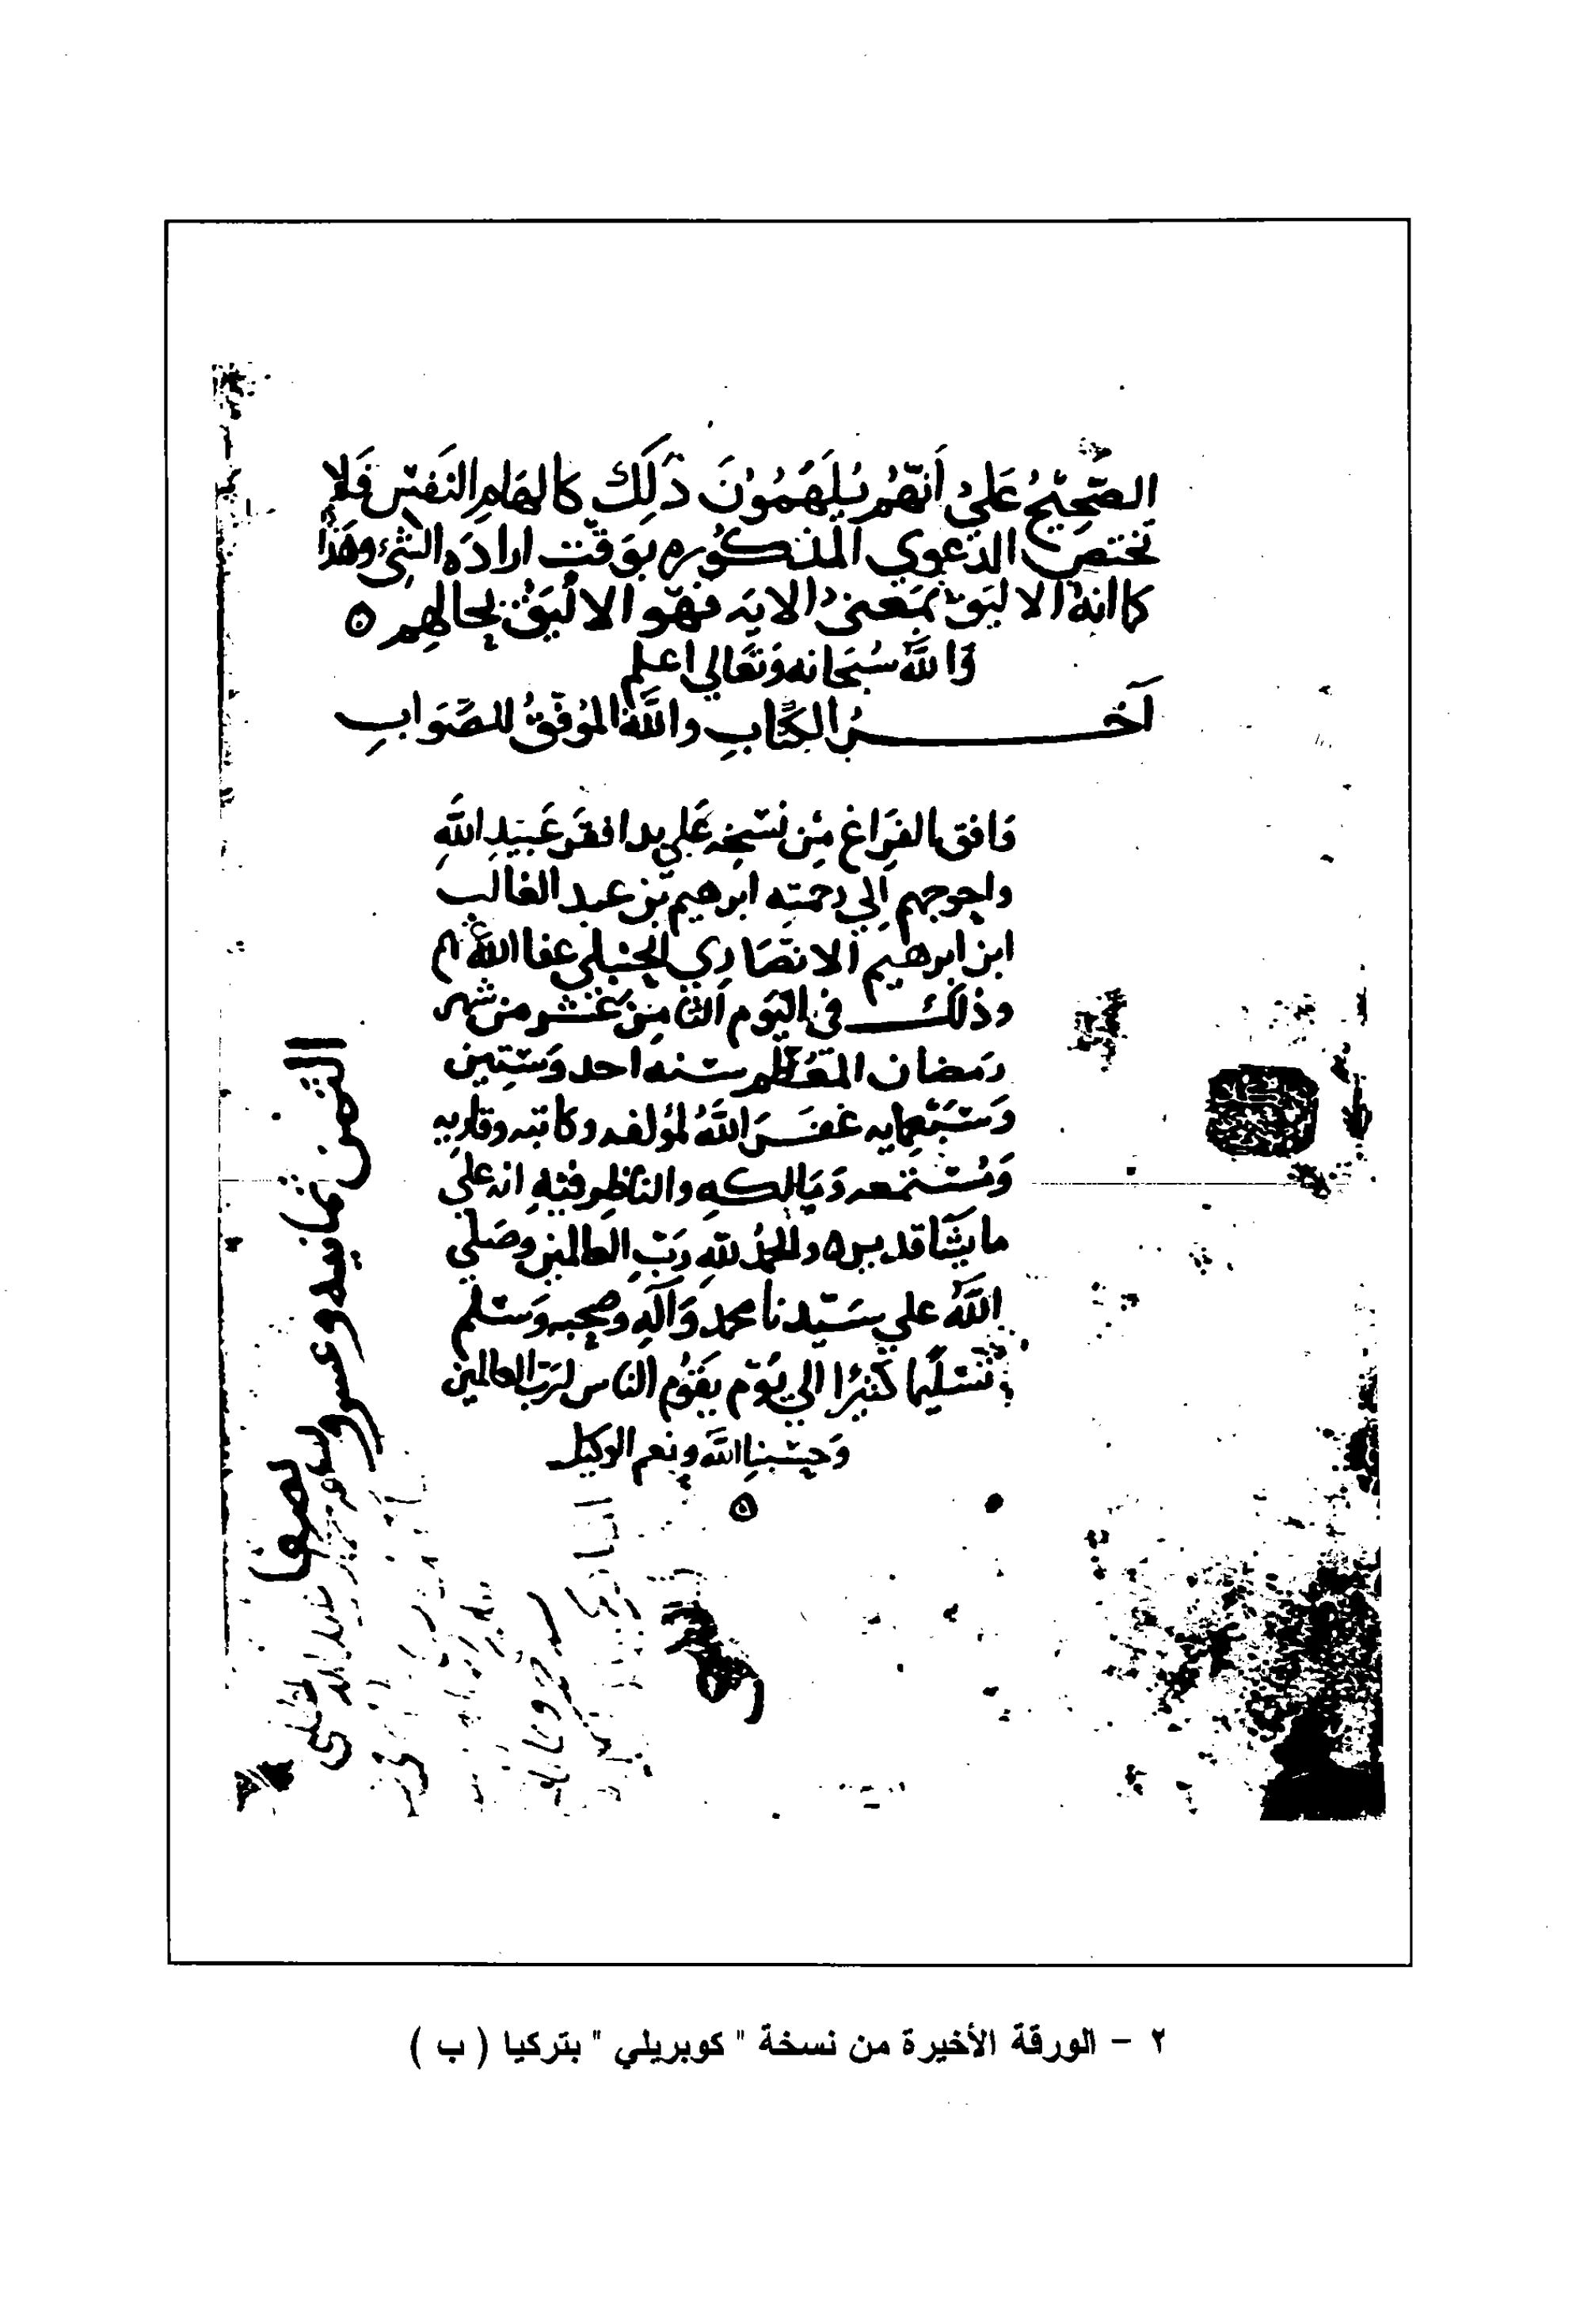 الصَّحِيْحُ عَلى أَنَّهُم يُلهَمُوْنَ ذَلِكَ كالهَامِ النَفَسِ فَلا
تختصّ الدّعوي المذكوره بوَقْتِ ارادَه الشئ وهَذا
كما انهُ الاليَق بمَعنى الايَه فهو الاليَقُ بحالهم ه
وَاللَّهُ سُبْحَانه وَتَعَالى اعلم
آخـــرُ الكِتَابِ واللَّهُ الموَفِّقُ للصَّوَابِ
وَافق الفَرَاغ مِن نسخِه عَلى يد افقر عَبيدِ اللَّهِ
واحوجهم اِلى رحمته ابرهيم بْن عبد الغالب
ابن ابرهيم الانصَاري الحنبلى عفا اللَّه عنهم
وذلك في اليَوم الثامن عَشر من شهر
رمضان المعَظم سنه احد وَستين
وَسَبْعمايه غفر اللَّهُ لمؤلفه وكاتبه وقاريه
وَمُستمعه وَمَالكه والناظر فيه انه على
ما يشَا قدير ه والحمدُ للَّهِ رَبّ العالمين وصَلى
اللَّهُ علي سَيّدنا محمد وَآله وصحبه وَسَلم
تسْليمًا كثيرًا الي يَوْم يَقوُم الناس لرَبّ العالمين
وَحسْبنا اللَّه ونعم الوكيل
ه
الثمن ثمانيه وعسرو نصفا
٢ - الورقة الأخيرة من نسخة " كوبريلي " بتركيا ( ب )